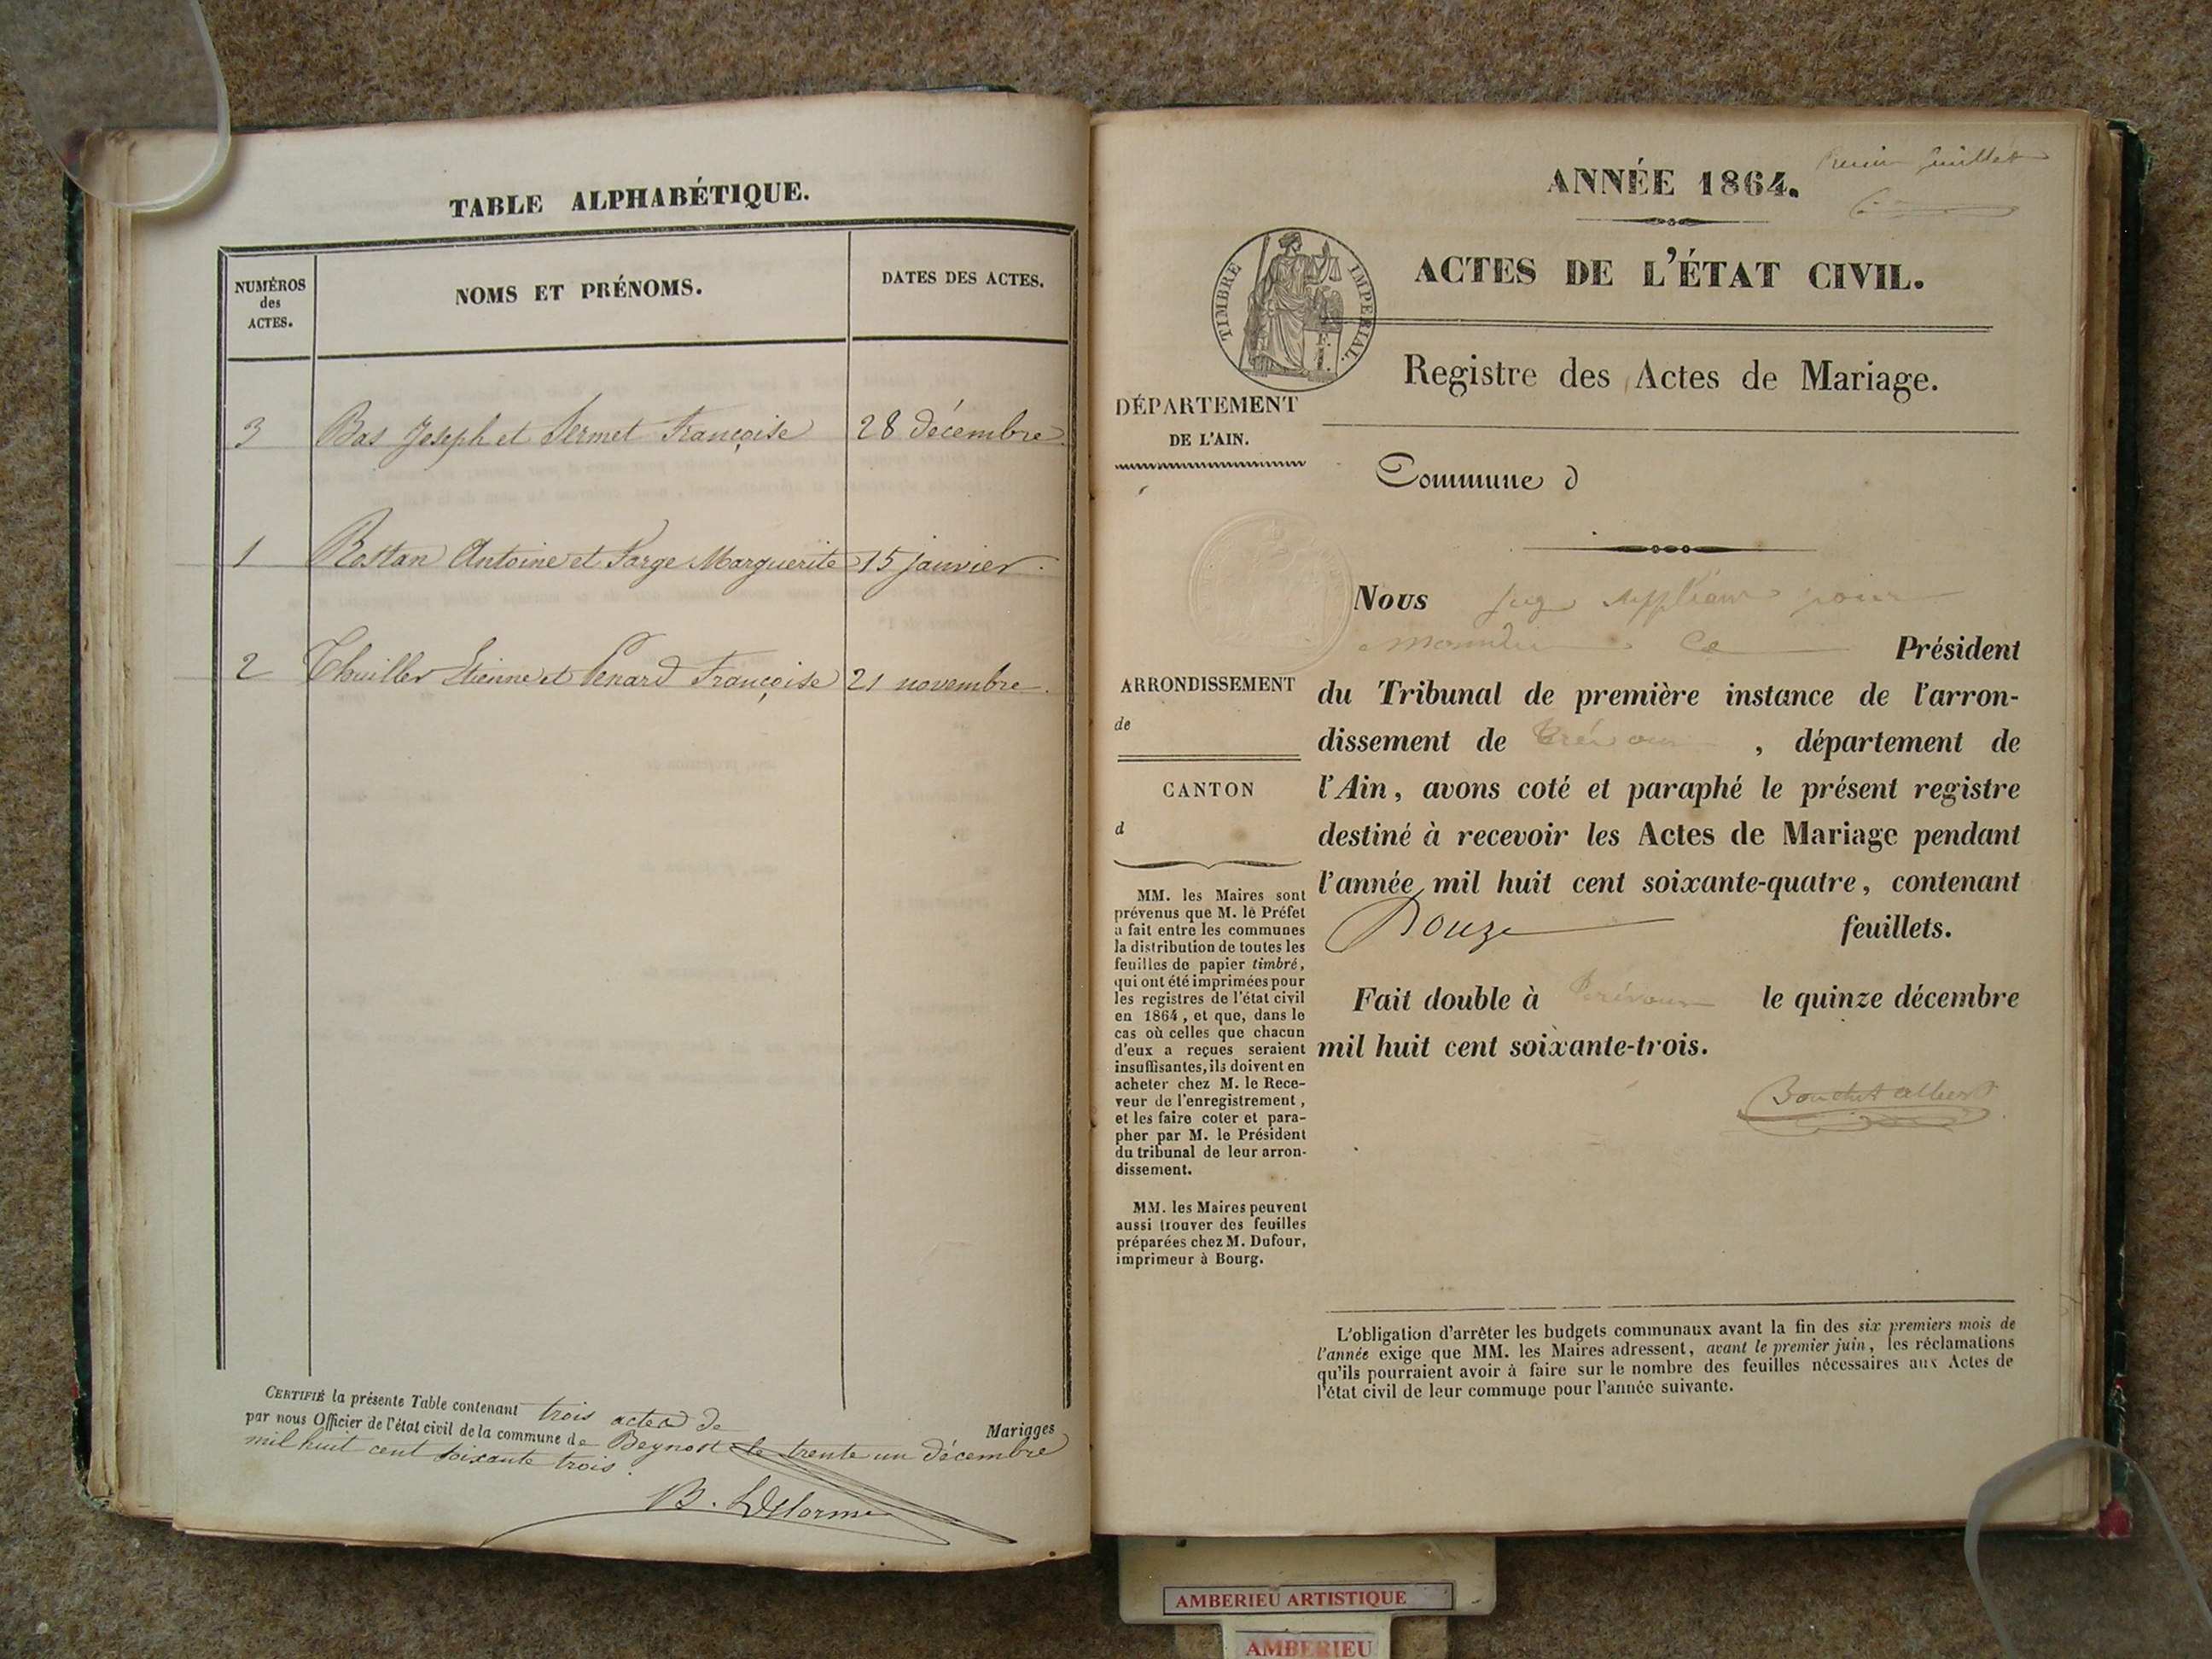 TABLE ALPHABÉTIQUE.
NUMÉROS des ACTES.
NOMS ET PRÉNOMS.
DATES DES ACTES.
3 Bas Joseph et Sermet Françoise 28 décembre
1 Rostan Antoine et Farge Marguerite 15 janvier.
2 Thuiller Etienne et Penard Françoise 21 novembre.
CERTIFIÉ la présente Table contenant trois actes de Mariages
par nous Officier de l'état civil de la commune de Beynost le trente un décembre
mil huit cent soixante trois.
B. Delorme
Premier feuillet
ANNÉE 1864.
ACTES DE L'ÉTAT CIVIL.
TIMBRE IMPÉRIAL.
Registre des Actes de Mariage.
DÉPARTEMENT
DE L'AIN.
Commune d
Nous juge suppléant pour
Président
ARRONDISSEMENT
de
CANTON
d
du Tribunal de première instance de l'arron-
dissement de Trévoux, département de
l'Ain, avons coté et paraphé le présent registre
destiné à recevoir les Actes de Mariage pendant
l'année mil huit cent soixante-quatre, contenant
Douze feuillets.
Fait double à Trévoux le quinze décembre
mil huit cent soixante-trois.
MM. les Maires sont
prévenus que M. le Préfet
a fait entre les communes
la distribution de toutes les
feuilles de papier timbré,
qui ont été imprimées pour
les registres de l'état civil
en 1864, et que, dans le
cas où celles que chacun
d'eux a reçues seraient
insuffisantes, ils doivent en
acheter chez M. le Rece-
veur de l'enregistrement,
et les faire coter et para-
pher par M. le Président
du tribunal de leur arron-
dissement.
MM. les Maires peuvent
aussi trouver des feuilles
préparées chez M. Dufour,
imprimeur à Bourg.
L'obligation d'arrêter les budgets communaux avant la fin des six premiers mois de
l'année exige que MM. les Maires adressent, avant le premier juin, les réclamations
qu'ils pourraient avoir à faire sur le nombre des feuilles nécessaires aux Actes de
l'état civil de leur commune pour l'année suivante.
AMBERIEU ARTISTIQUE
AMBERIEU